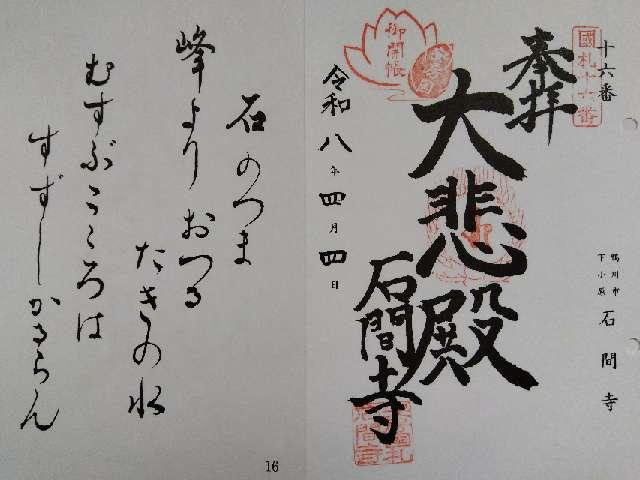 十六番
國札十六番
奉拝
御開帳
大悲殿
令和八年四月四日
石間寺
鴨川市
下小原
石間寺
石のつま
峰より おつる
たきの水
むすぶこゝろは
すずしかるらん
16